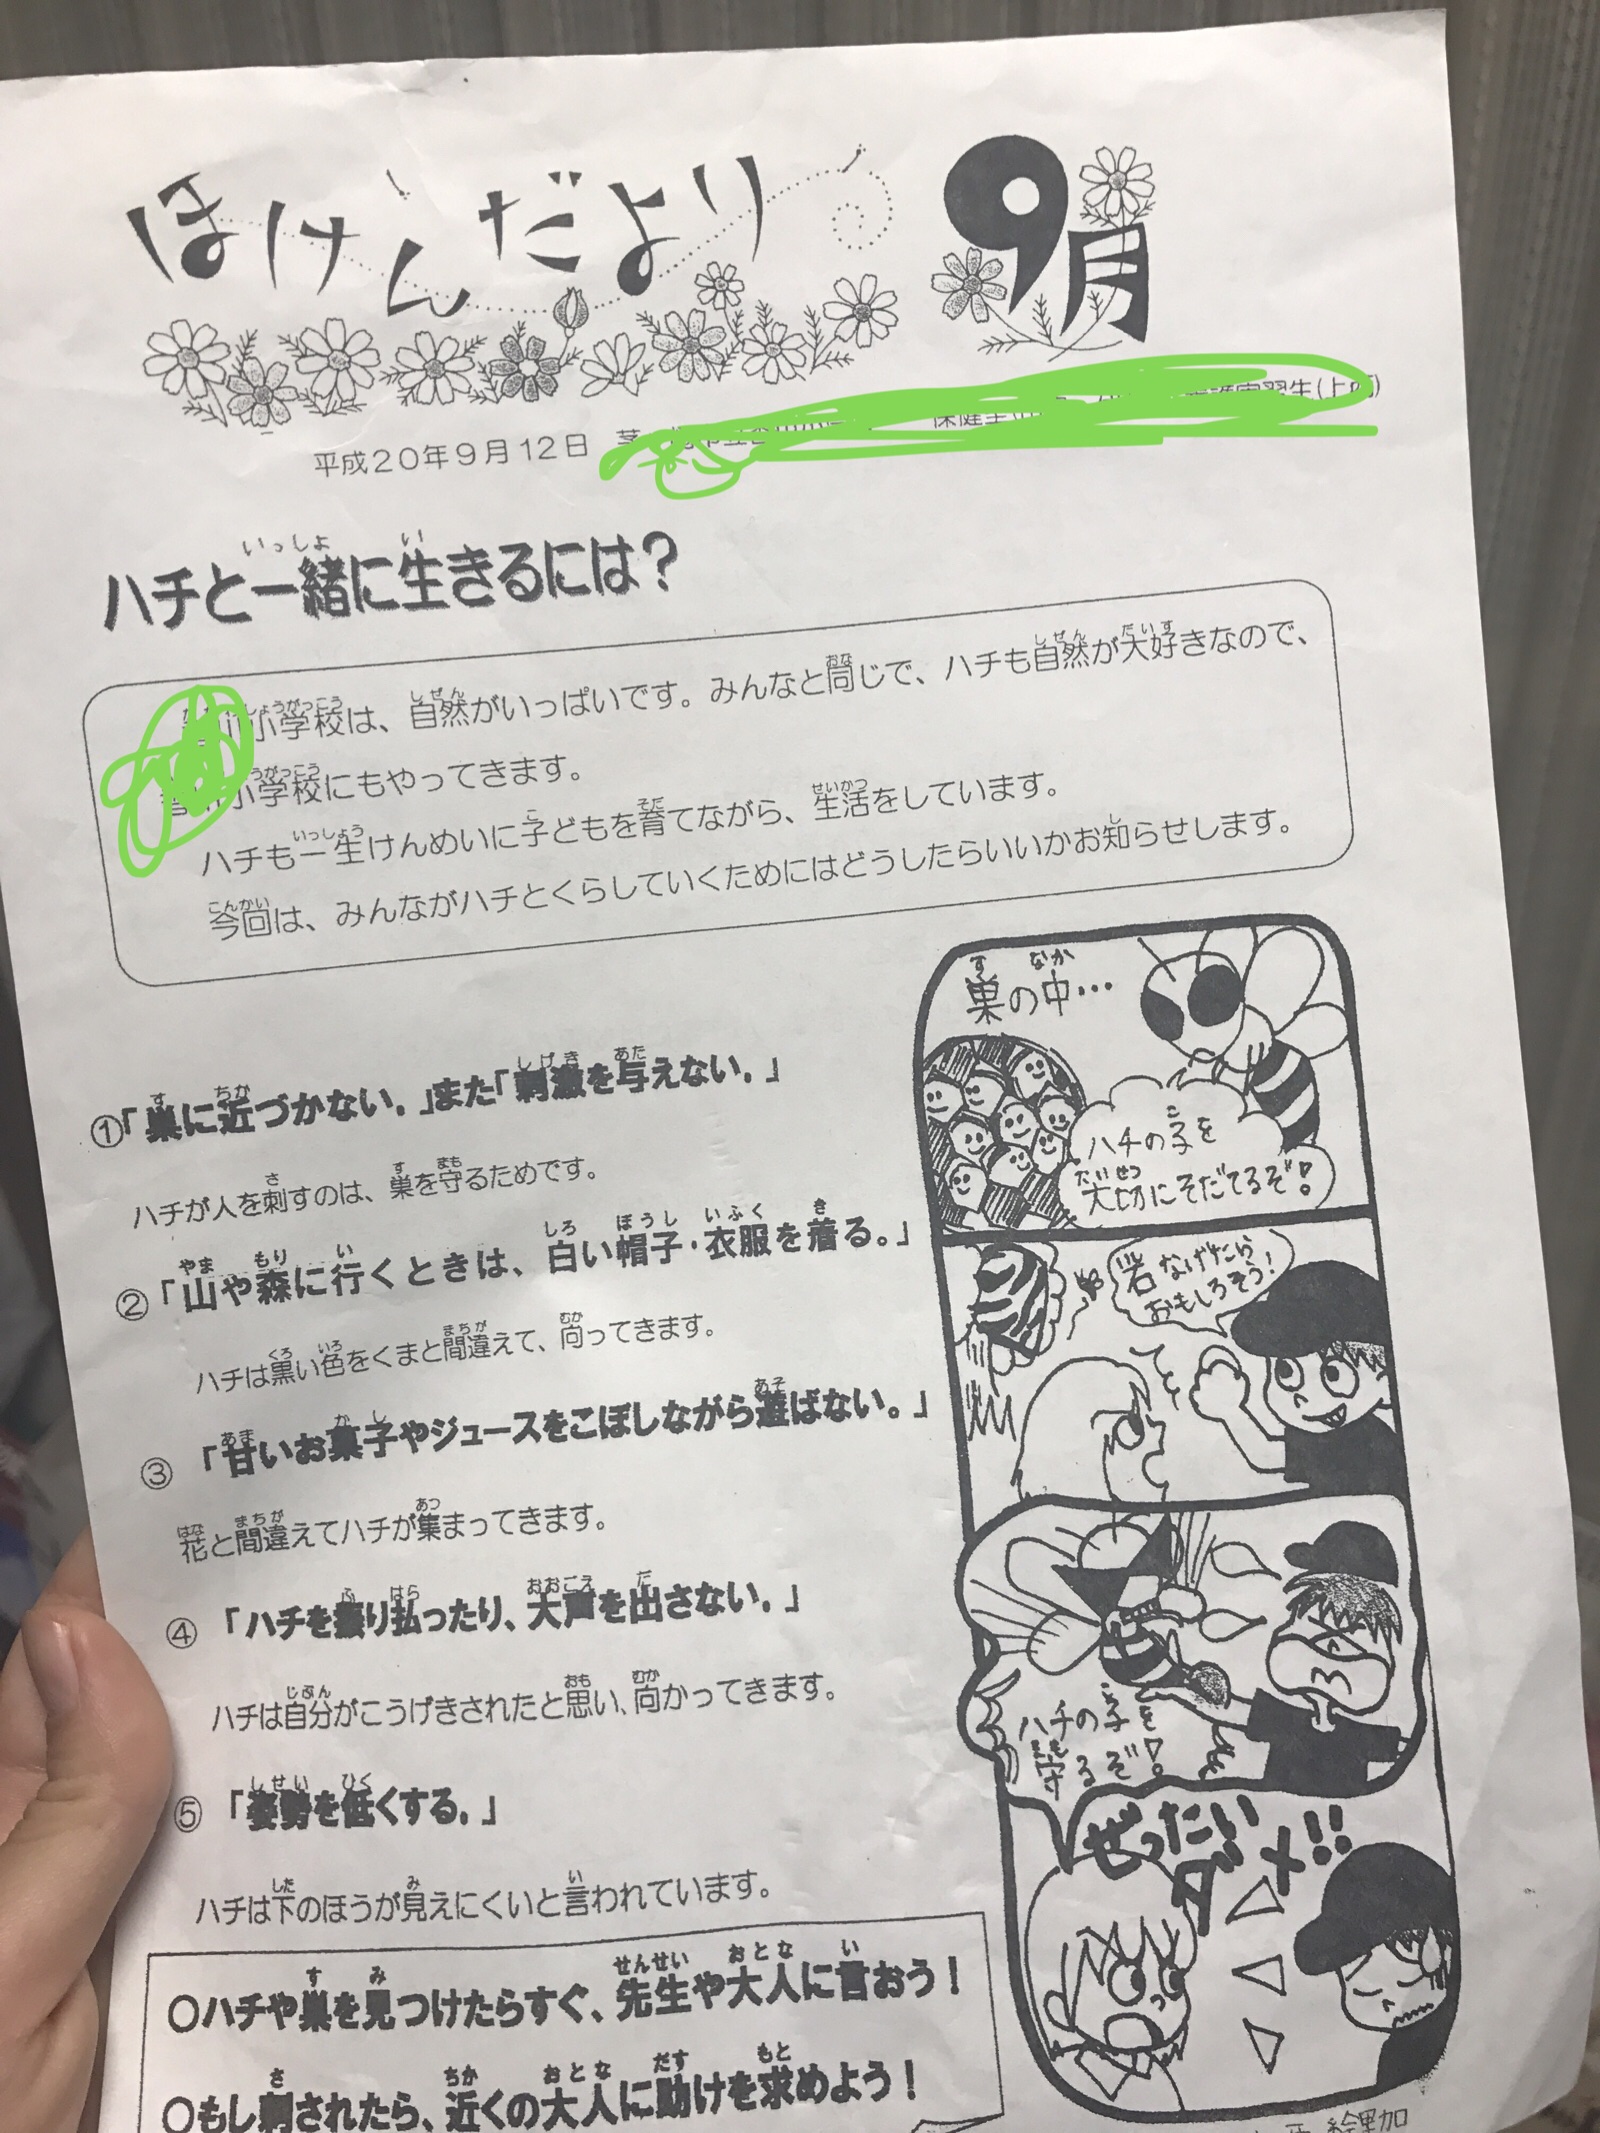 ほけんだより 9月
平成20年9月12日
ハチと一緒に生きるには？
小学校は、自然がいっぱいです。みんなと同じで、ハチも自然が大好きなので、
小学校にもやってきます。
ハチも一生けんめいに子どもを育てながら、生活をしています。
今回は、みんながハチとくらしていくためにはどうしたらいいかお知らせします。
①「巣に近づかない。」また「刺激を与えない。」
ハチが人を刺すのは、巣を守るためです。
②「山や森に行くときは、白い帽子・衣服を着る。」
ハチは黒い色をくまと間違えて、向ってきます。
③「甘いお菓子やジュースをこぼしながら遊ばない。」
花と間違えてハチが集まってきます。
④「ハチを振り払ったり、大声を出さない。」
ハチは自分がこうげきされたと思い、向かってきます。
⑤「姿勢を低くする。」
ハチは下のほうが見えにくいと言われています。
○ハチや巣を見つけたらすぐ、先生や大人に言おう！
○もし刺されたら、近くの大人に助けを求めよう！
巣の中…
ハチの子を
大切にそだてるぞ！
岩なげたら
おもしろそう！
ハチの子を
守るぞ！
ぜったい
ダメ!!
絵里加